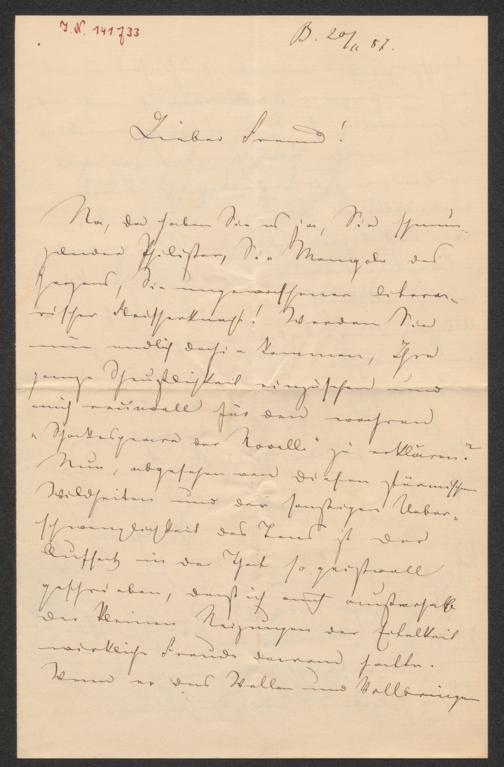 I. N. 141.733
B. 20/ 87.
Lieber Freund!
Na, da haben Sie es ja, Sie schmun-
zelnder Philister, Sie Mongole des
Herzens, Sie ungewaschener litera-
rischer Fleischerknecht! Werden Sie
nun endlich dazu kommen, Ihre
ganze Scheußlichkeit einzusehen und
mich reuevoll für den wahren
„Shakespeare der Novelle" zu erklären?
Nun, abgesehen von diesen stürmischen
Wildheiten und der sonstigen Ueber-
schwenglichkeit des Tons ist der
Aufsatz in der That so geistvoll
geschrieben, daß ich auch außerhalb
der kleinen Reizungen der Eitelkeit
wirkliche Freude daran hatte.
Wenn er das Wollen und Vollbringen